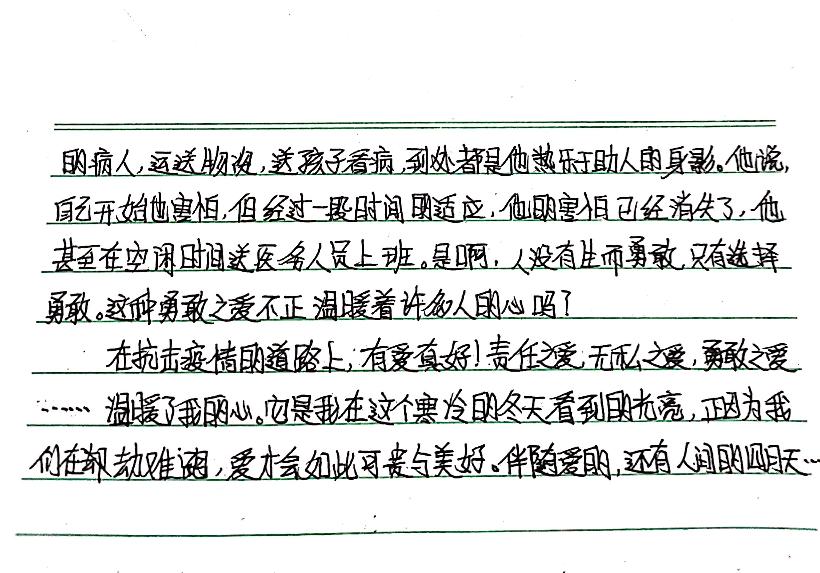 的病人，运送物资，送孩子看病，到处都是他热乐于助人的身影。他说，
自己开始他害怕，但经过一段时间的适应，他的害怕已经消失了，他
甚至在空闲时间送医务人员上班。是啊，人没有生而勇敢，只有选择
勇敢。这种勇敢之爱不正温暖着许多人的心吗？
在抗击疫情的道路上，有爱真好！责任之爱，无私之爱，勇敢之爱
……温暖了我的心。它是我在这个寒冷的冬天看到的光亮，正因为我
们在劫难，爱才会如此可贵与美好。伴随爱的，还有人间的四月天…